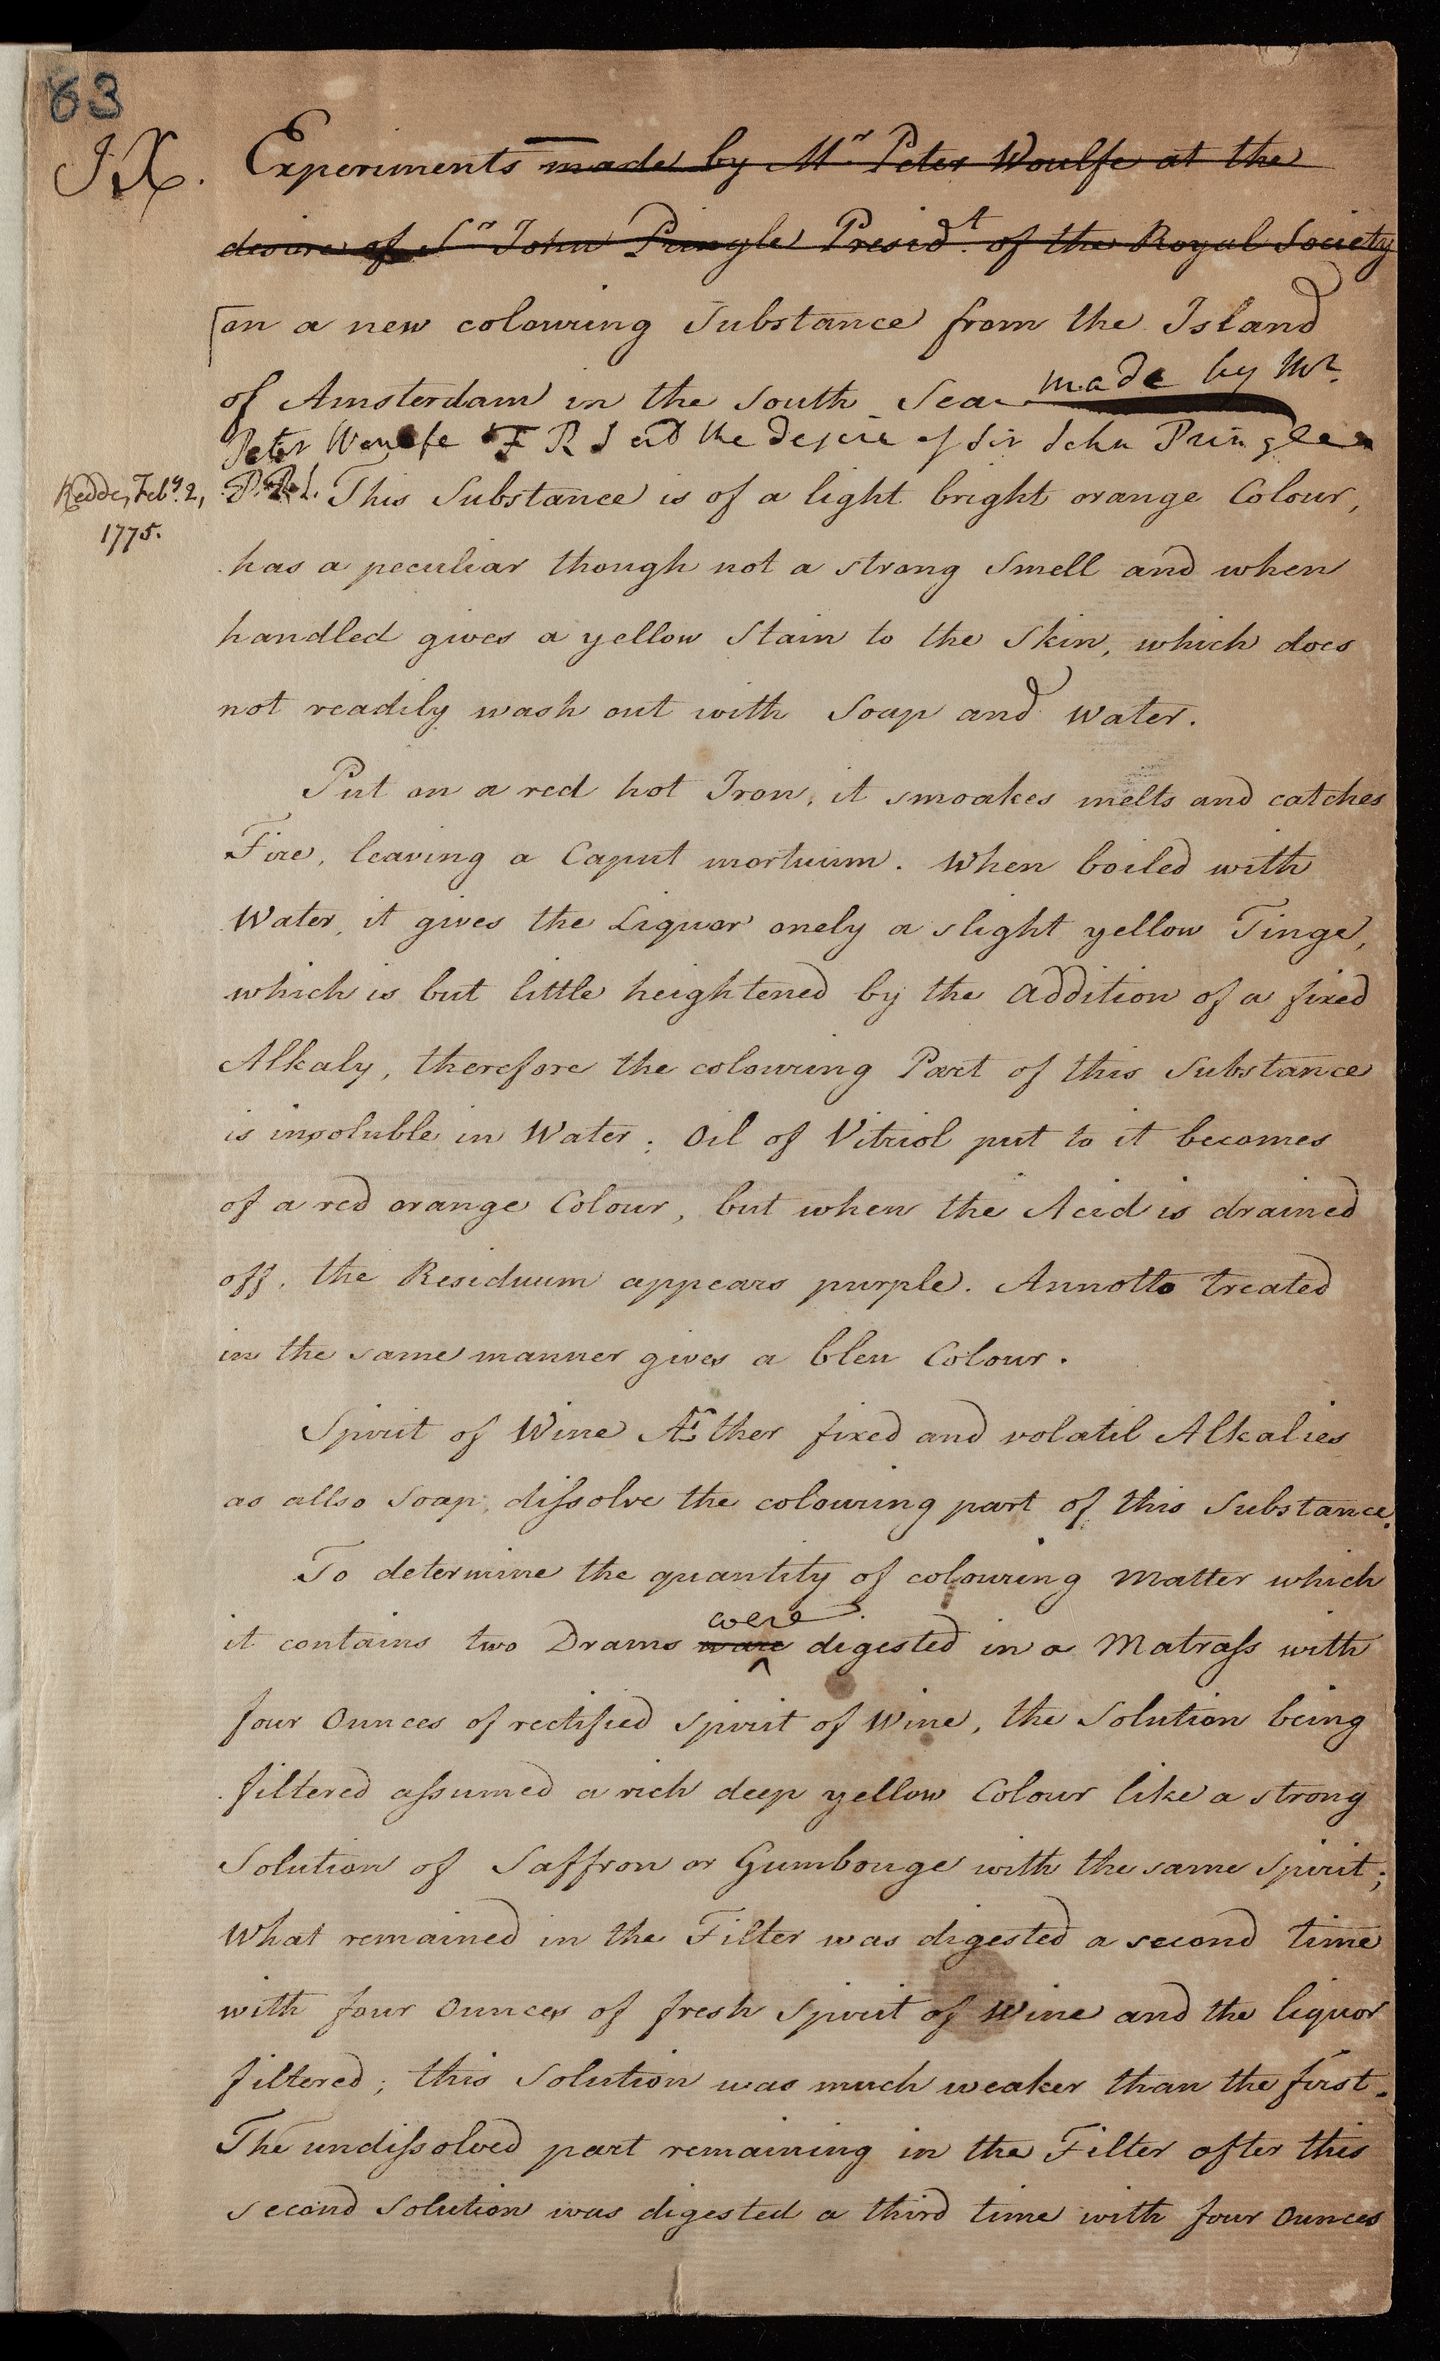 63
IX. Experiments made by Mr Peter Woulfe at the
desire of Sr John Pringle Presidt. of the Royal Society
on a new colouring Substance from the Island
of Amsterdam in the South Sea made by Mr.
Peter Woulfe F R S at the desire of Sir John Pringle
P.R.S. This Substance is of a light bright orange Colour,
Redde, Feby. 2,
1775.
has a peculiar though not a strong Smell and when
handled gives a yellow Stain to the Skin, which does
not readily wash out with Soap and Water.
Put on a red hot Iron, it smoakes melts and catches
Fire, leaving a Caput mortuum. When boiled with
Water, it gives the Liquor onely a slight yellow Tinge,
which is but little heightened by the Addition of a fixed
Alkaly, therefore the colouring Part of this Substance
is insoluble in Water; Oil of Vitriol put to it becomes
of a red orange Colour, but when the Acid is drained
off, the Residuum appears purple. Annotto treated
in the same manner gives a bleu Colour.
Spirit of Wine Æther fixed and volatil Alkalies
as allso Soap, dissolve the colouring part of this Substance.
To determine the quantity of colouring Matter which
it contains two Drams ware were digested in a Matrass with
four Ounces of rectified Spirit of Wine, the Solution being
filtered assumed a rich deep yellow Colour like a strong
Solution of Saffron or Gumbouge with the same Spirit;
What remained in the Filter was digested a second time
with four Ounces of fresh Spirit of Wine and the liquor
filtered; this Solution was much weaker than the first.
The undissolved part remaining in the Filter after this
second Solution was digested a third time with four Ounces